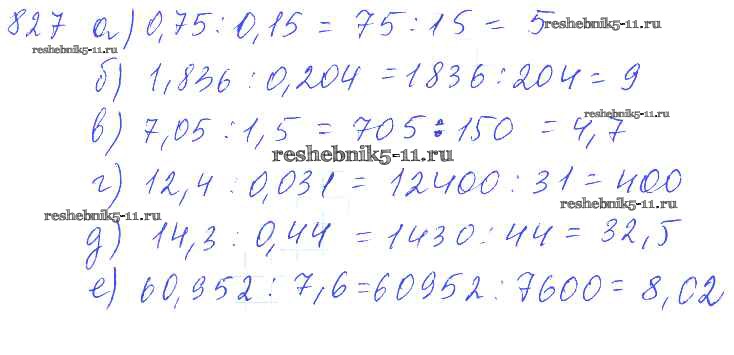 827 а) 0,75 : 0,15 = 75 : 15 = 5
reshebnik5-11.ru
reshebnik5-11.ru
б) 1,836 : 0,204 = 1836 : 204 = 9
reshebnik5-11.ru
в) 7,05 : 1,5 = 705 : 150 = 4,7
reshebnik5-11.ru
г) 12,4 : 0,031 = 12400 : 31 = 400
reshebnik5-11.ru
reshebnik5-11.ru
д) 14,3 : 0,44 = 1430 : 44 = 32,5
е) 60,952 : 7,6 = 60952 : 7600 = 8,02